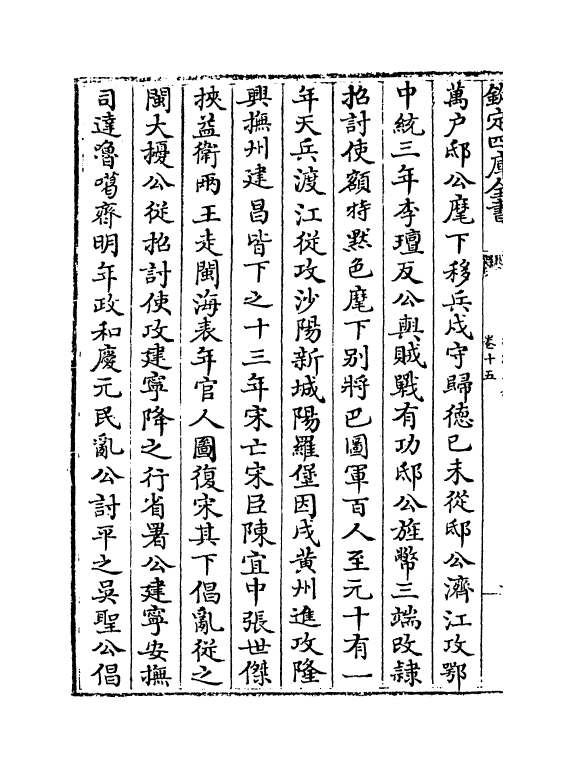 欽定四庫全書
卷十五
萬户邸公麾下移兵戍守歸德已未從邸公濟江攻鄂
中統三年李璮反公與賊戰有功邸公旌幣三端改隸
招討使額特黙色麾下别將巴圖軍百人至元十有一
年天兵渡江從攻沙陽新城陽羅堡因戍黄州進攻隆
興撫州建昌皆下之十三年宋亡宋臣陳宜中張世傑
挾益衛兩王走閩海表年官人圖復宋其下倡亂從之
閩大擾公從招討使攻建寧降之行省署公建寧安撫
司達嚕噶齊明年政和慶元民亂公討平之吳聖公倡